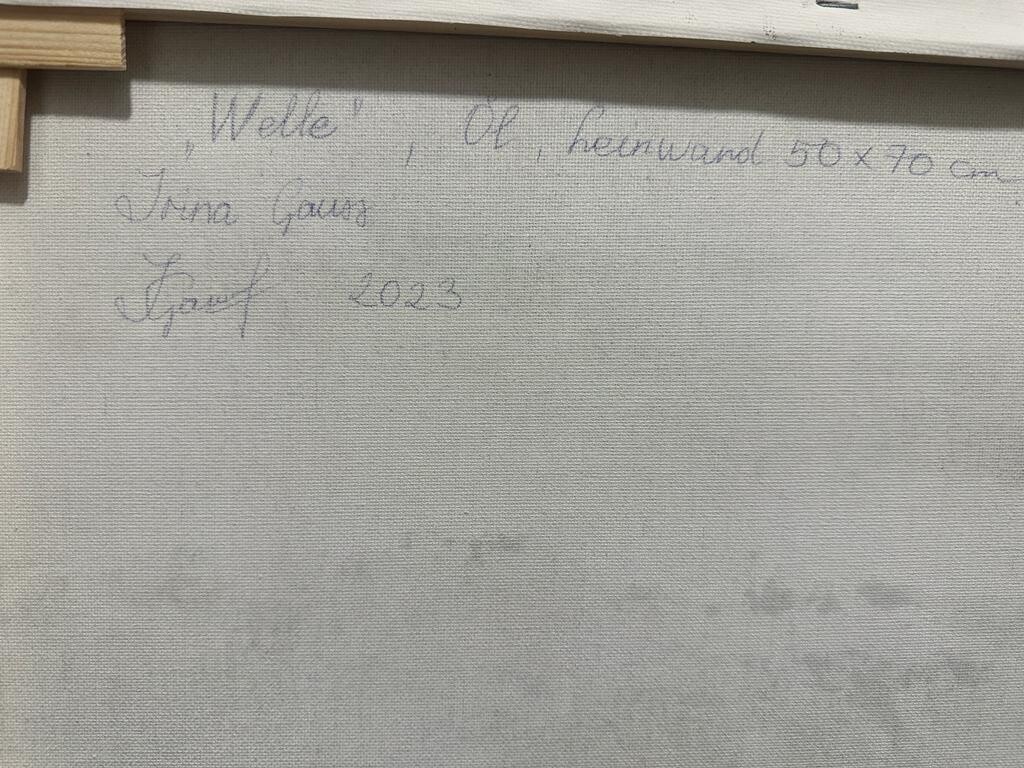 „Welle", Öl, Leinwand 50 x 70 cm
Irina Gauss
2023